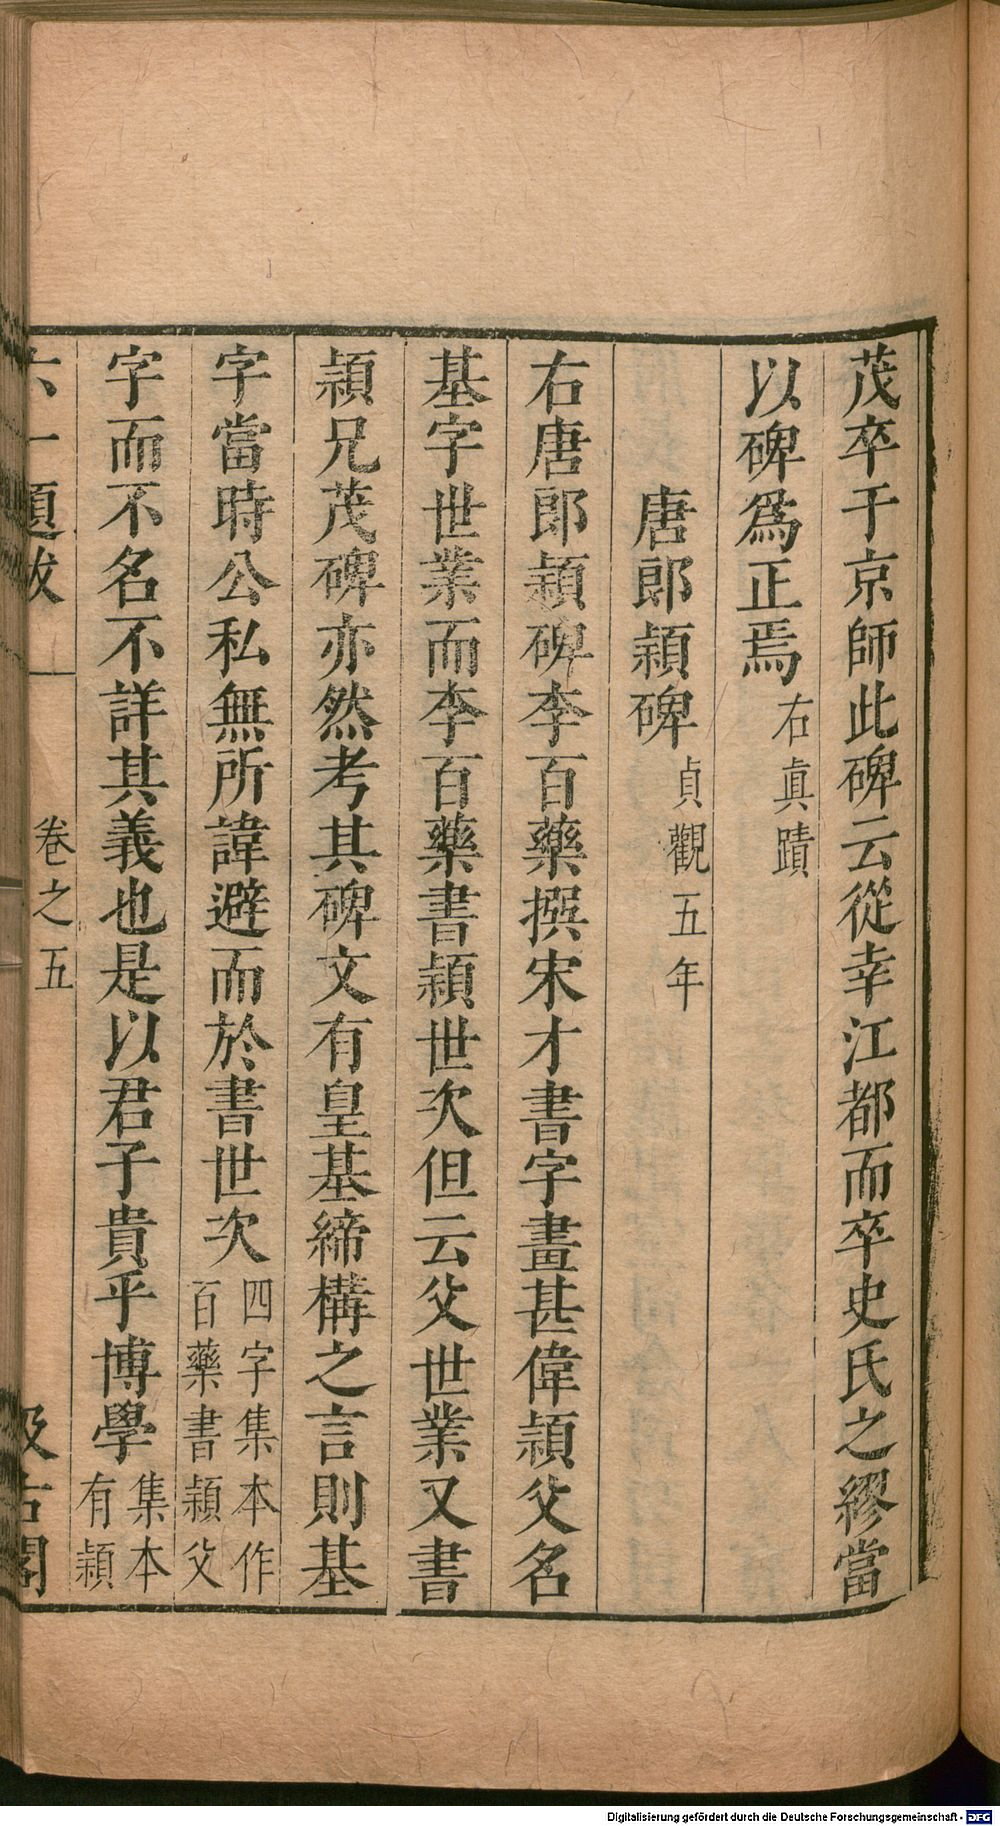 茂卒于京師此碑云從幸江都而卒史氏之繆當
以碑爲正焉右眞蹟
唐郎穎碑貞觀五年
右唐郎穎碑李百藥撰宋才書字畫甚偉穎父名
基字世業而李百藥書穎世次但云父世業又書
穎兄茂碑亦然考其碑文有皇基締構之言則基
字當時公私無所諱避而於書世次四字集本作百藥書穎父
字而不名不詳其義也是以君子貴乎博學集本有穎
六一題跋 卷之五 汲古閣
Digitalisierung gefördert durch die Deutsche Forschungsgemeinschaft - DFG